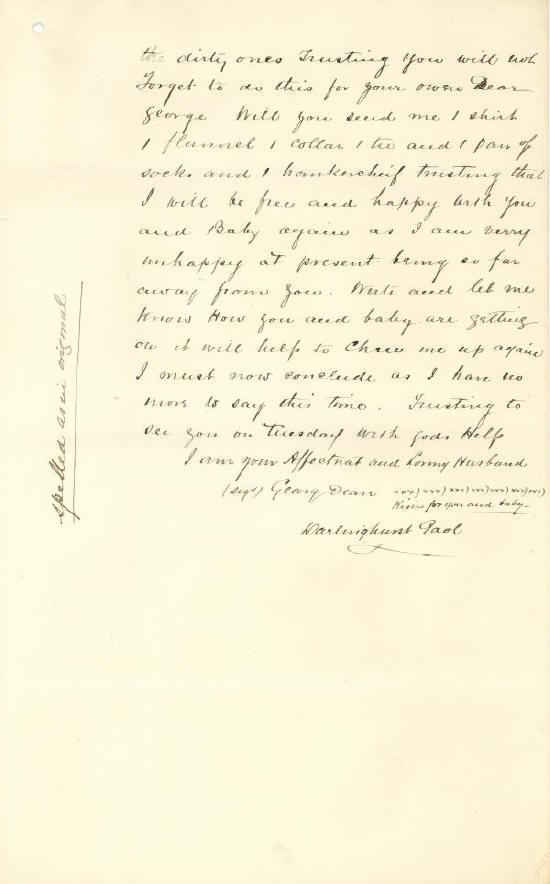 the dirty ones Trusting you will not
Forget to do this for your owen Dear
George. Will you send me 1 shirt
1 flannel 1 collar 1 tie and 1 pair of
socks and 1 hankercheif trusting that
I will be free and happy with you
and Baby again as I am verry
unhappy at present being so far
away from you. Write and let me
Know How you and baby are getting
on it will help to Cheer me up again
I must now conclude as I have no
more to say this time. Trusting to
see you on Tuesday with gods Help
I am your Affectnat and Loving Husband
(sigd) Georg Dean xxx) xxx) xxx) xxx) xxx) xxx) xxx)
Kisses for you and baby
Darlinghurst Gaol
spelled as in original